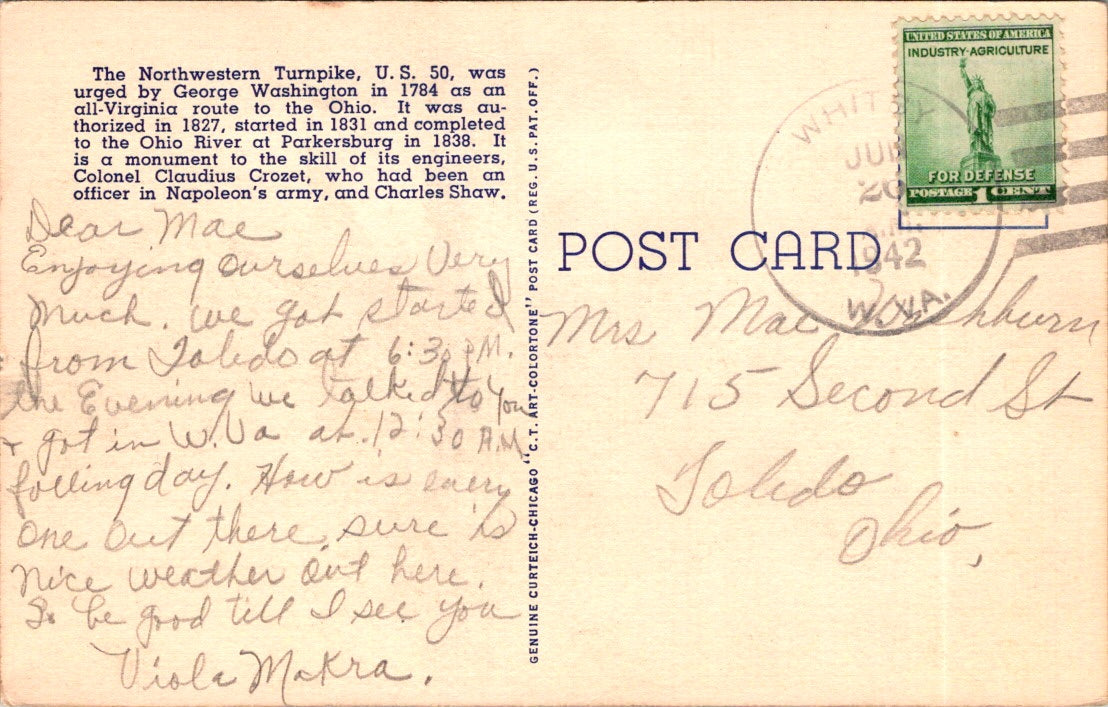 The Northwestern Turnpike, U. S. 50, was
urged by George Washington in 1784 as an
all-Virginia route to the Ohio. It was au-
thorized in 1827, started in 1831 and completed
to the Ohio River at Parkersburg in 1838. It
is a monument to the skill of its engineers,
Colonel Claudius Crozet, who had been an
officer in Napoleon's army, and Charles Shaw.
Dear Mae
Enjoying ourselves Very
much. we got started
from Toledo at 6:30 P.M.
the Evening we talked to You
+ got in W.Va at 12:30 A.M
folling day. How is every
one out there, sure is
nice weather out here.
So be good till I see you
Viola
GENUINE CURTEICH-CHICAGO "C.T. ART-COLORTONE" POST CARD (REG. U.S. PAT. OFF.)
UNITED STATES OF AMERICA
INDUSTRY·AGRICULTURE
FOR DEFENSE
POSTAGE 1 CENT
20
1942
W.VA.
POST CARD
Mrs Mae
715 Second St
Toledo
Ohio,